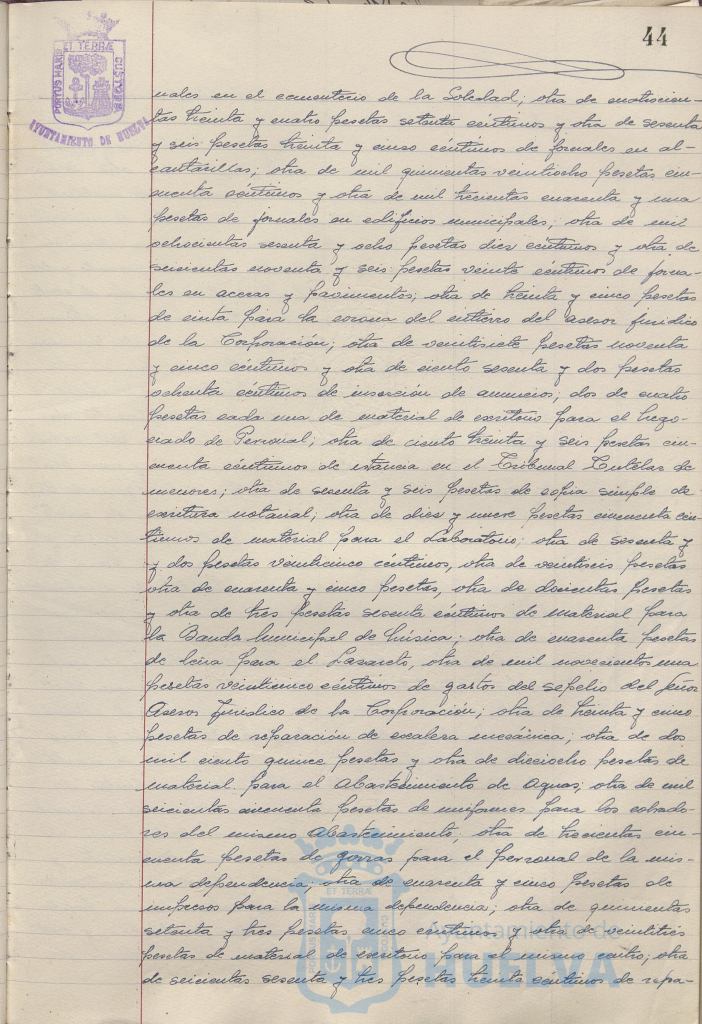 44
PORTUS MARIS ET TERRÆ CUSTODIA
AYUNTAMIENTO DE HUELVA
nales en el cementerio de la Soledad; otra de cuatrocien-
tas treinta y cuatro pesetas setenta céntimos y otra de sesenta
y seis pesetas treinta y cinco céntimos de jornales en al-
cantarillas; otra de mil quinientas veintiocho pesetas cin-
cuenta céntimos y otra de mil trescientas cuarenta y una
pesetas de jornales en edificios municipales; otra de mil
ochocientas sesenta y ocho pesetas diez céntimos y otra de
seiscientas noventa y seis pesetas veinte céntimos de jorna-
les en aceras y pavimentos; otra de treinta y cinco pesetas
de cinta para la corona del entierro del asesor jurídico
de la Corporación; otra de veintisiete pesetas noventa
y cinco céntimos y otra de ciento sesenta y dos pesetas
ochenta céntimos de inserción de anuncios; dos de cuatro
pesetas cada una de material de escritorio para el Nego-
ciado de Personal; otra de ciento treinta y seis pesetas cin-
cuenta céntimos de estancia en el Tribunal Tutelar de
menores; otra de sesenta y seis pesetas de copia simple de
escritura notarial; otra de diez y nueve pesetas cincuenta cén-
timos de material para el Laboratorio; otra de sesenta y
y dos pesetas veinticinco céntimos, otra de veintiseis pesetas
otra de cuarenta y cinco pesetas, otra de doscientas pesetas
y otra de tres pesetas sesenta céntimos de material para
la Banda Municipal de Música; otra de cuarenta pesetas
de leña para el Lazareto, otra de mil novecientos una
pesetas veinticinco céntimos de gastos del sepelio del Señor
Asesor Jurídico de la Corporación; otra de treinta y cinco
pesetas de reparación de escalera mecánica; otra de dos
mil ciento quince pesetas y otra de dieciocho pesetas de
material para el Abastecimiento de Aguas; otra de mil
seiscientas cincuenta pesetas de uniformes para los cobrado-
res del mismo Abastecimiento, otra de trescientas cin-
cuenta pesetas de gorras para el personal de la mis-
ma dependencia; otra de cuarenta y cinco pesetas de
impresos para la misma dependencia; otra de quinientas
setenta y tres pesetas cinco céntimos y otra de veintitrés
pesetas de material de escritorio para el mismo centro; otra
de seiscientas sesenta y tres pesetas treinta céntimos de repa-
PORTUS MARIS ET TERRÆ CUSTODIA
Ayuntamiento de
HUELVA